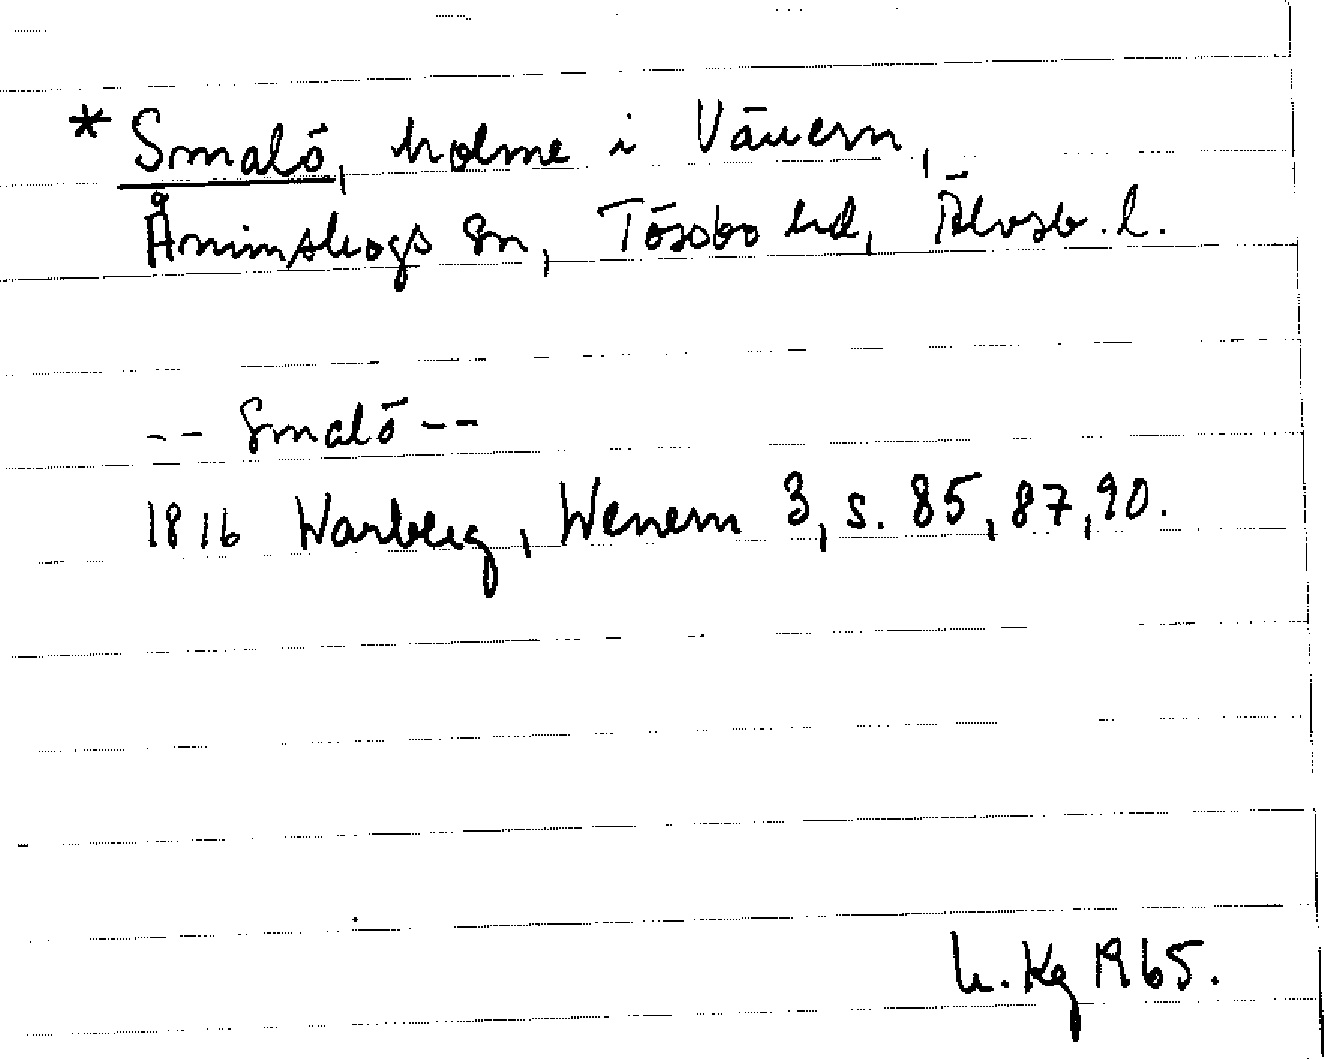 * Smalö, holme i Vänern,
Ånimskogs sn, Tössbo hd, Älvsb. l.
-- Smalö --
1816 Warberg, Wenern 3, s. 85, 87, 90.
Kg 1965.